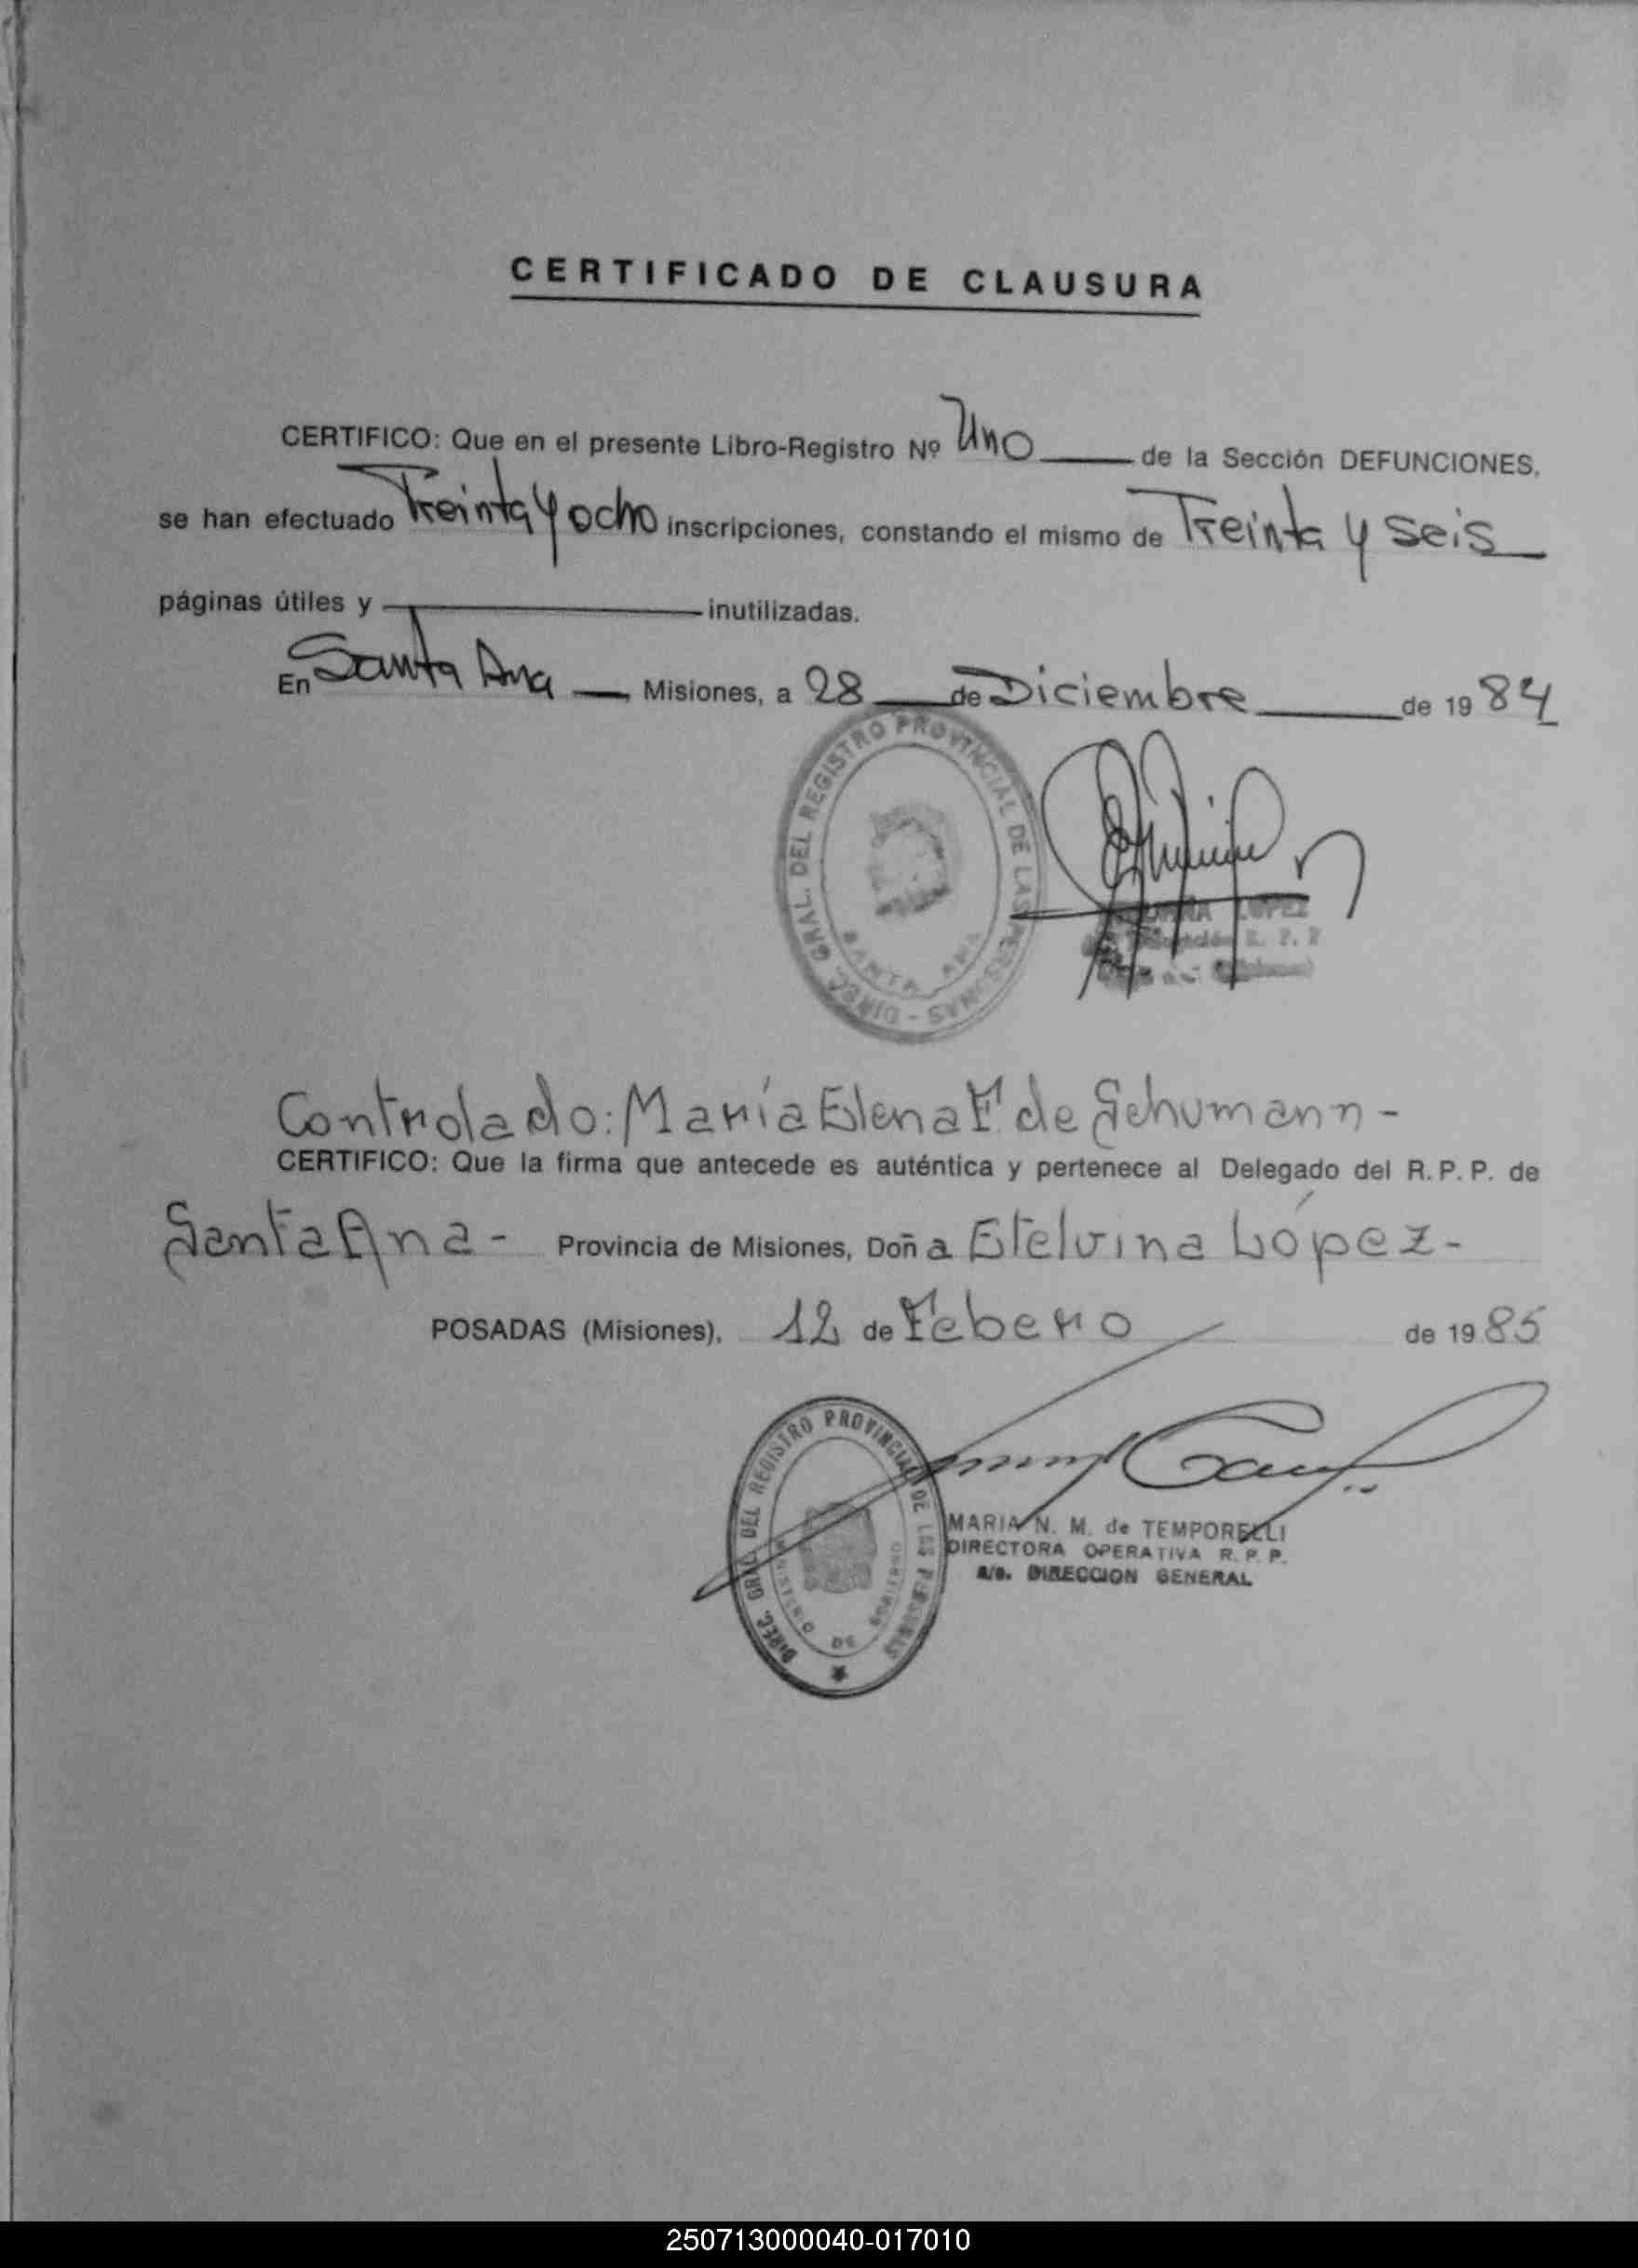 CERTIFICADO DE CLAUSURA
CERTIFICO: Que en el presente Libro-Registro Nº Uno de la Sección DEFUNCIONES,
se han efectuado Treinta y ocho inscripciones, constando el mismo de Treinta y seis
páginas útiles y inutilizadas.
En Santa Ana — Misiones, a 28 de Diciembre de 1984
DIREC. GRAL. DEL REGISTRO PROVINCIAL DE LAS PERSONAS -
SANTA ANA
LOPEZ
R. P. P
Controlado: María Elena F. de Schumann -
CERTIFICO: Que la firma que antecede es auténtica y pertenece al Delegado del R. P. P. de
Santa Ana - Provincia de Misiones, Doña Etelvina López -
POSADAS (Misiones), 12 de Febero de 1985
DIREC. GRAL. DEL REGISTRO PROVINCIAL DE LAS PERSONAS
MINISTERIO DE GOBIERNO
MARIA N. M. de TEMPORELLI
DIRECTORA OPERATIVA R. P. P.
a/c. DIRECCION GENERAL
250713000040-017010